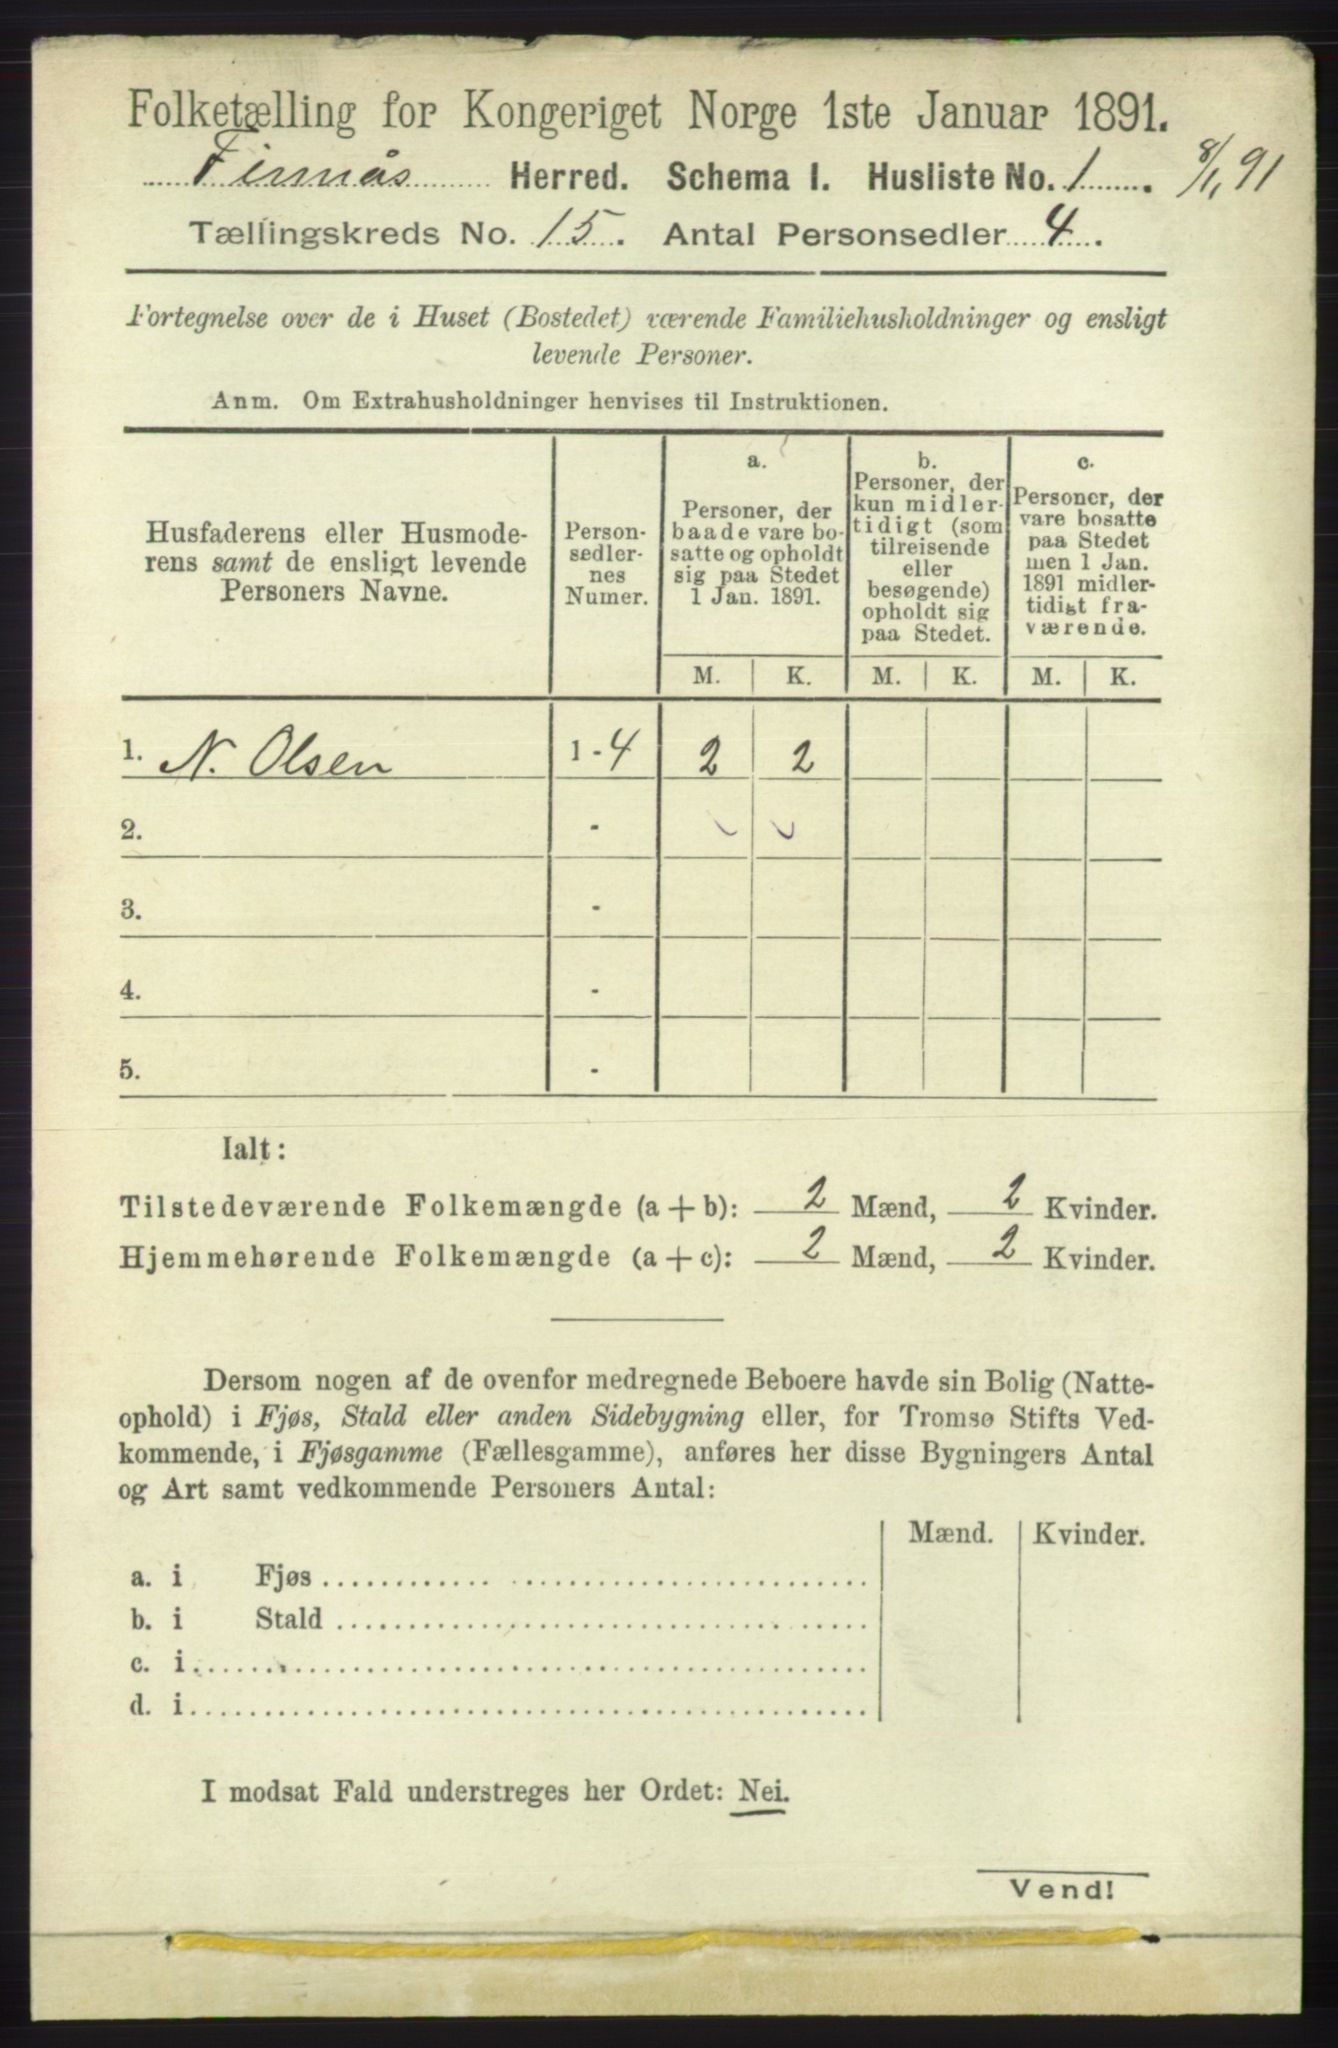 Folketælling for Kongeriget Norge 1ste Januar 1891.
Herred. Schema I. Husliste No. 1. 8/1 91
Tællingskreds No. 15. Antal Personsedler 4.
Fortegnelse over de i Huset (Bostedet) værende Familiehusholdninger og ensligt
levende Personer.
Anm. Om Extrahusholdninger henvises til Instruktionen.
Husfaderens eller Husmode-
rens samt de ensligt levende
Personers Navne.
Person-
sedler-
nes
Numer.
a.
Personer, der
baade vare bo-
satte og opholdt
sig paa Stedet
1 Jan. 1891.
b.
Personer, der
kun midler-
tidigt (som
tilreisende
eller
besøgende)
opholdt sig
paa Stedet.
c.
Personer, der
vare bosatte
paa Stedet
men 1 Jan.
1891 midler-
tidigt fra-
værende.
M. K. M. K. M. K.
1. N. Olsen 1 - 4 2 2
2. -
3. -
4. -
5. -
Ialt:
Tilstedeværende Folkemængde (a + b): 2 Mænd, 2 Kvinder.
Hjemmehørende Folkemængde (a + c): 2 Mænd, 2 Kvinder.
Dersom nogen af de ovenfor medregnede Beboere havde sin Bolig (Natte-
ophold) i Fjøs, Stald eller anden Sidebygning eller, for Tromsø Stifts Ved-
kommende, i Fjøsgamme (Fællesgamme), anføres her disse Bygningers Antal
og Art samt vedkommende Personers Antal:
Mænd. Kvinder.
a. i Fjøs
b. i Stald
c. i
d. i
I modsat Fald understreges her Ordet: Nei.
Vend!